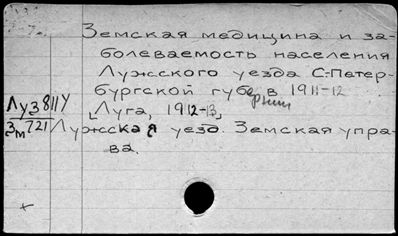 Земская медицина и за-
болеваемость населения
Лужского уезда С-Петер-
бургской губернии в 1911-12
[Луга, 1912-13]
Луз 811У
Зм 721
Лужская уезд. Земская упра-
ва.